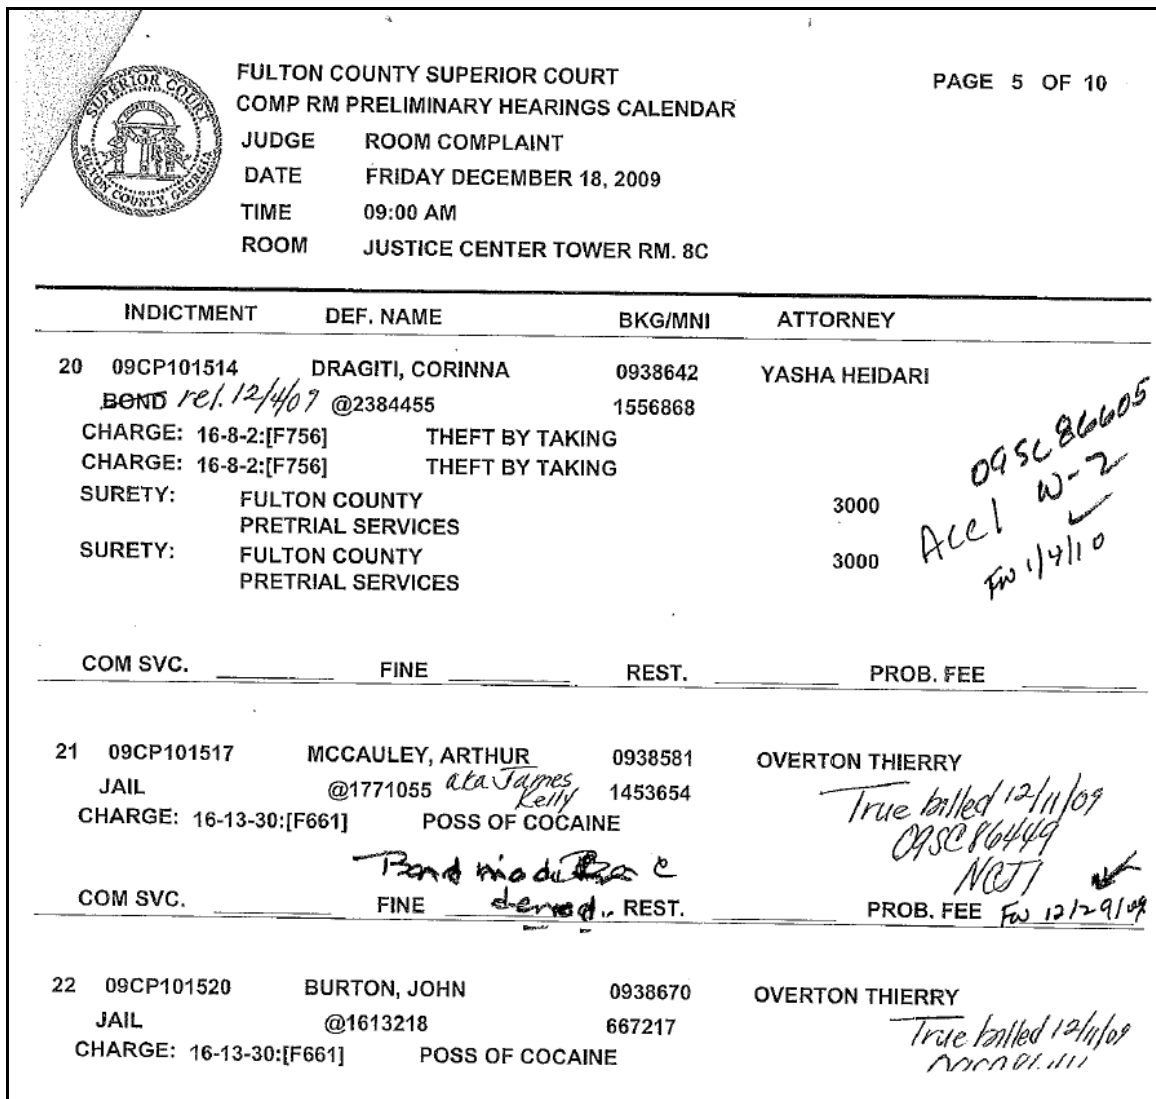 SUPERIOR COURT
FULTON COUNTY, GEORGIA
FULTON COUNTY SUPERIOR COURT
PAGE 5 OF 10
COMP RM PRELIMINARY HEARINGS CALENDAR
JUDGE ROOM COMPLAINT
DATE FRIDAY DECEMBER 18, 2009
TIME 09:00 AM
ROOM JUSTICE CENTER TOWER RM. 8C
INDICTMENT DEF. NAME BKG/MNI ATTORNEY
20 09CP101514 DRAGITI, CORINNA 0938642 YASHA HEIDARI
BOND rel. 12/4/09 @2384455 1556868
CHARGE: 16-8-2:[F756] THEFT BY TAKING
CHARGE: 16-8-2:[F756] THEFT BY TAKING
SURETY: FULTON COUNTY 3000
PRETRIAL SERVICES
SURETY: FULTON COUNTY 3000
PRETRIAL SERVICES
09SC86605
Acc1 W-2
FW 1/4/10
COM SVC. FINE REST. PROB. FEE
21 09CP101517 MCCAULEY, ARTHUR 0938581 OVERTON THIERRY
JAIL @1771055 aka James Kelly 1453654
CHARGE: 16-13-30:[F661] POSS OF COCAINE
True billed 12/11/09
09SC86449
Bond
denied.
COM SVC. FINE REST. PROB. FEE FW 12/29/09
22 09CP101520 BURTON, JOHN 0938670 OVERTON THIERRY
JAIL @1613218 667217
CHARGE: 16-13-30:[F661] POSS OF COCAINE
True billed 12/11/09